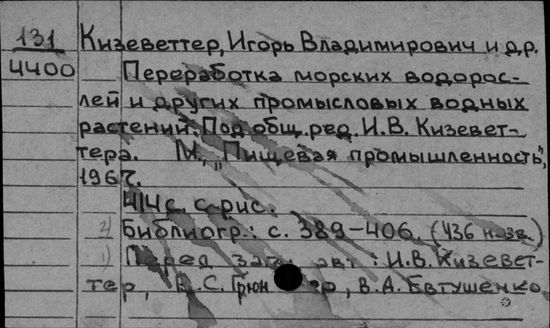 131
4400
Кизеветтер, Игорь Владимирович и др.
Переработка морских водорос-
лей и других промысловых водных
растений. Под общ. ред. И.В. Кизевет-
тера. М., "Пищевая промышленность",
1967.
414 с. с рис.
2) Библиогр.: с. 389-406. (436 назв.)
1) Перед загл. авт.: И.В. Кизевет-
тер, В.С. Грюн ер, В.А. Евтушенко